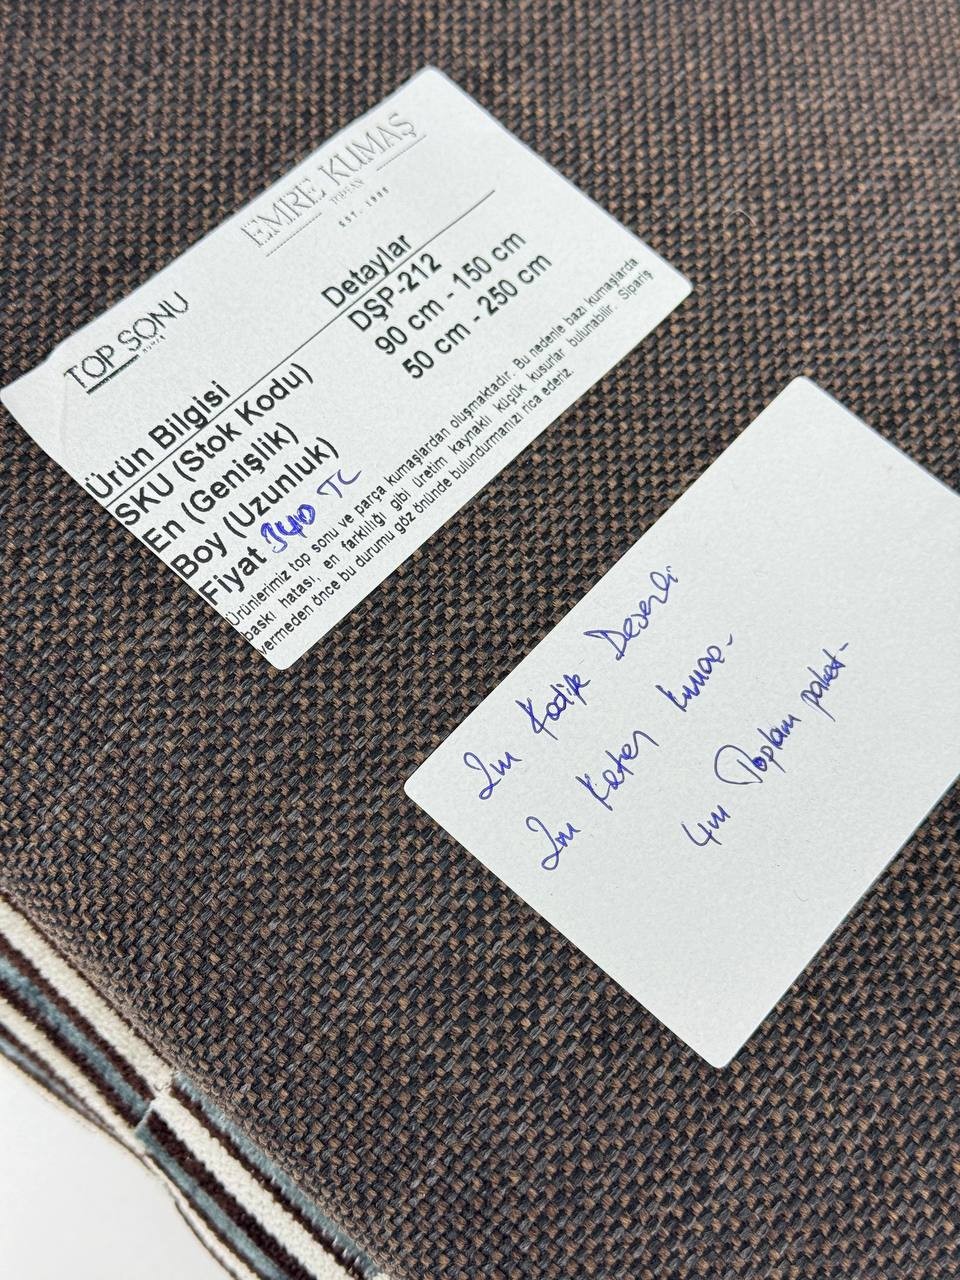 EMRE KUMAŞ
TOPTAN
EST. 1988
TOP SONU
Ürün Bilgisi Detaylar
SKU (Stok Kodu) DŞP-212
En (Genişlik) 90 cm - 150 cm
Boy (Uzunluk) 50 cm - 250 cm
Fiyat 340 TL
Ürünlerimiz top sonu ve parça kumaşlardan oluşmaktadır. Bu nedenle bazı kumaşlarda
baskı hatası, en farklılığı gibi üretim kaynaklı küçük kusurlar bulunabilir. Sipariş
vermeden önce bu durumu göz önünde bulundurmanızı rica ederiz.
2m Kadife Desenli
2m Keten kumaş
4m Toplam paket